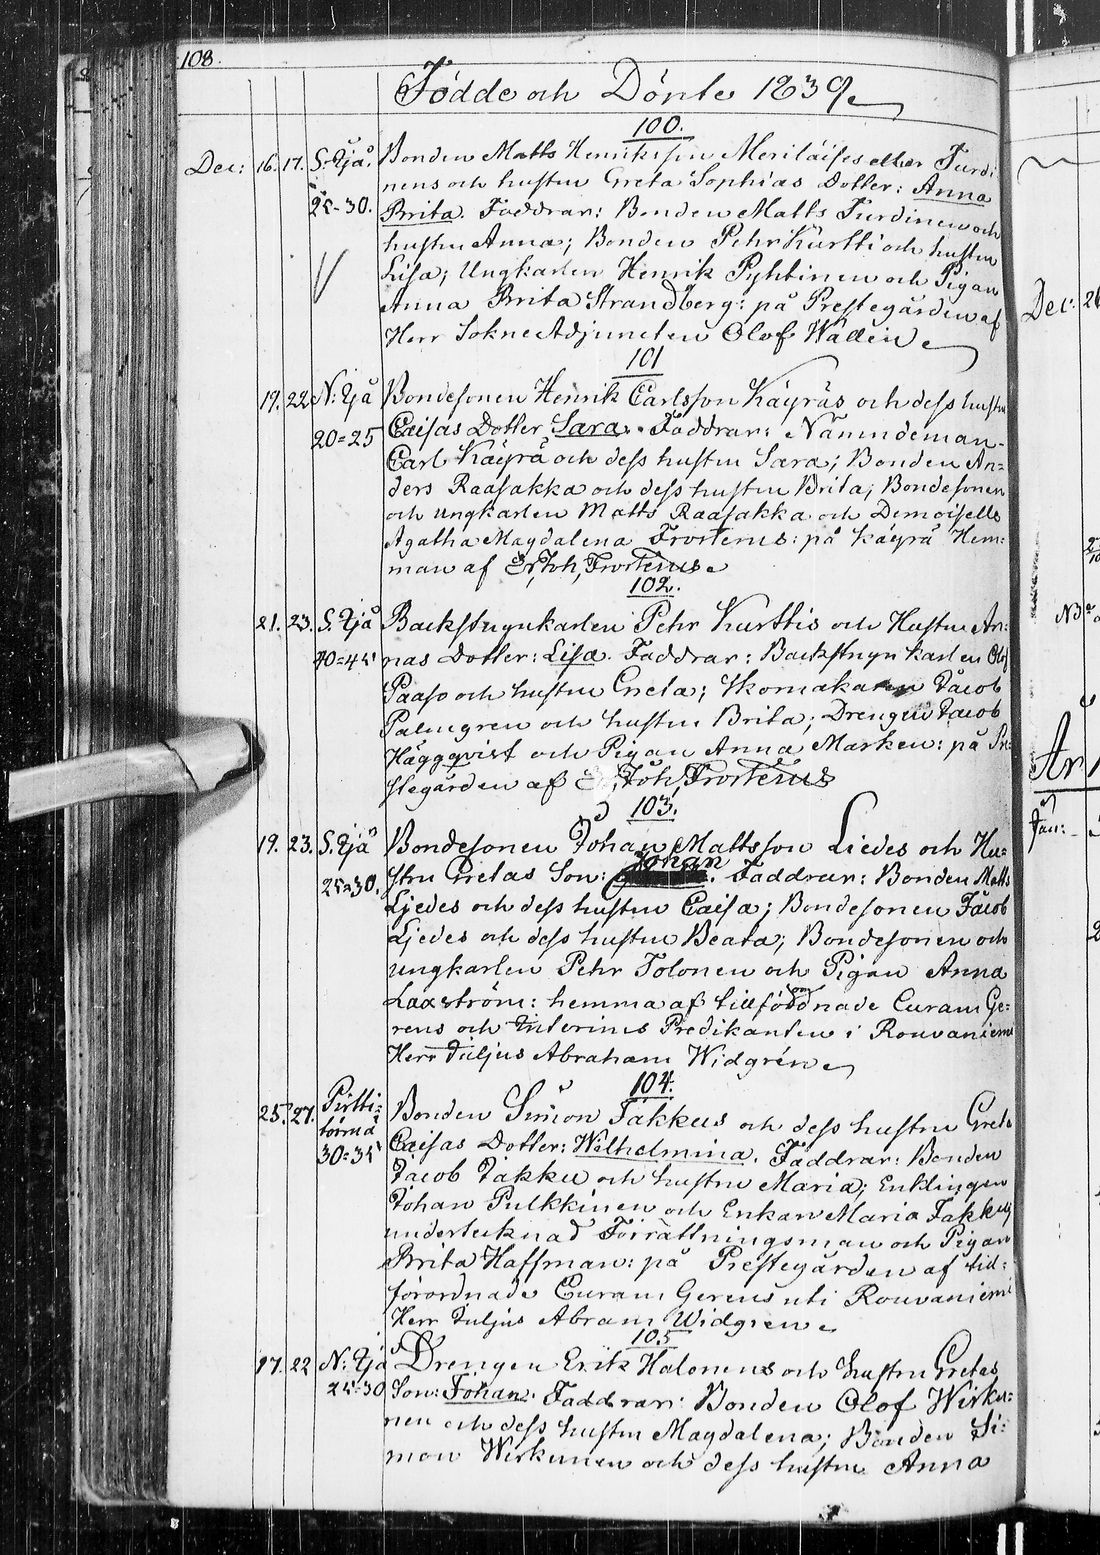 108.
Födde och Dönte 1839
100.
Dec: 16. 17. S. Ijå. Bonden Matts Henriksson Meriläises eller Turdi-
nens och hustru Greta Sophias Dotter: Anna
25-30. Brita. Faddrar: Bonden Matts Turdinen och
hustru Anna; Bonden Pehr Kurtti och hustru
Lisa; Ungkarlen Henrik Pyhtinen och Pigan
Anna Brita Strandberg: på Prestegården af
Herr SokneAdjuncten Olof Wallin
101
19. 22 N: Ijå Bondesonen Henrik Carlsson Käyräs och dess hustru
20=25 Caisas Dotter Sara. Faddrar: Nämndeman-
Carl Käyrä och dess hustru Sara; Bonden An=
ders Raasakka och dess hustru Brita; Bondesonen
och ungkarlen Matts Raasakka och Demoiselle
Agatha Magdalena Frosterus: på Käyrä Hem=
man af Joh, Frosterus
102.
21. 23. S. Ijå Backstugukarlen Pehr Kurttis och Hustru An=
40=45 nas Dotter: Lisa. Faddrar: Backstugukarlen Olof
Paaso och hustru Greta; Skomakaren Jacob
Palmgren och hustru Brita; Drengen Jacob
Häggqvist och Pigan Anna Marken: på Pre-
stegården af Joh, Frosterus
103.
19. 23. S. Ijå Bondesonen Johan Mattsson Liedes och Hu=
Johan
25=30. stru Gretas Son: . Faddrar: Bonden Matts
Liedes och dess hustru Caisa; Bondesonen Jacob
Liedes och dess hustru Beata; Bondesonen och
ungkarlen Pehr Tolonen och Pigan Anna
Laxström: hemma af tillförordnade Curam Ge=
rens och Interims Predikanten i Rouvaniemi
Herr Juljus Abraham Widgrén
104.
25. 27. Pirtti= Bonden Simon Jakkus och dess hustru Greta
törmä Caisas Dotter: Wilhelmina. Faddrar: Bonden
30=35 Jacob Jakku och hustru Maria; Enklingen
Johan Pulkkinen och Enkan Maria Jakku;
undertecknad Förrättningsman och Pigan
Brita Haffman: på Prestegården af till=
förordnade Curam Gerens uti Rouvaniemi
Herr Juljus Abram Widgren
105
17. 22 N: Ijå Drengen Erik Halonens och hustru Gretas
25=30 Son: Johan. Faddrar: Bonden Olof Wirku=
nen och dess hustru Magdalena; Bonden Si=
mon Wirkunen och dess hustru Anna
Dec: 26
Jan: